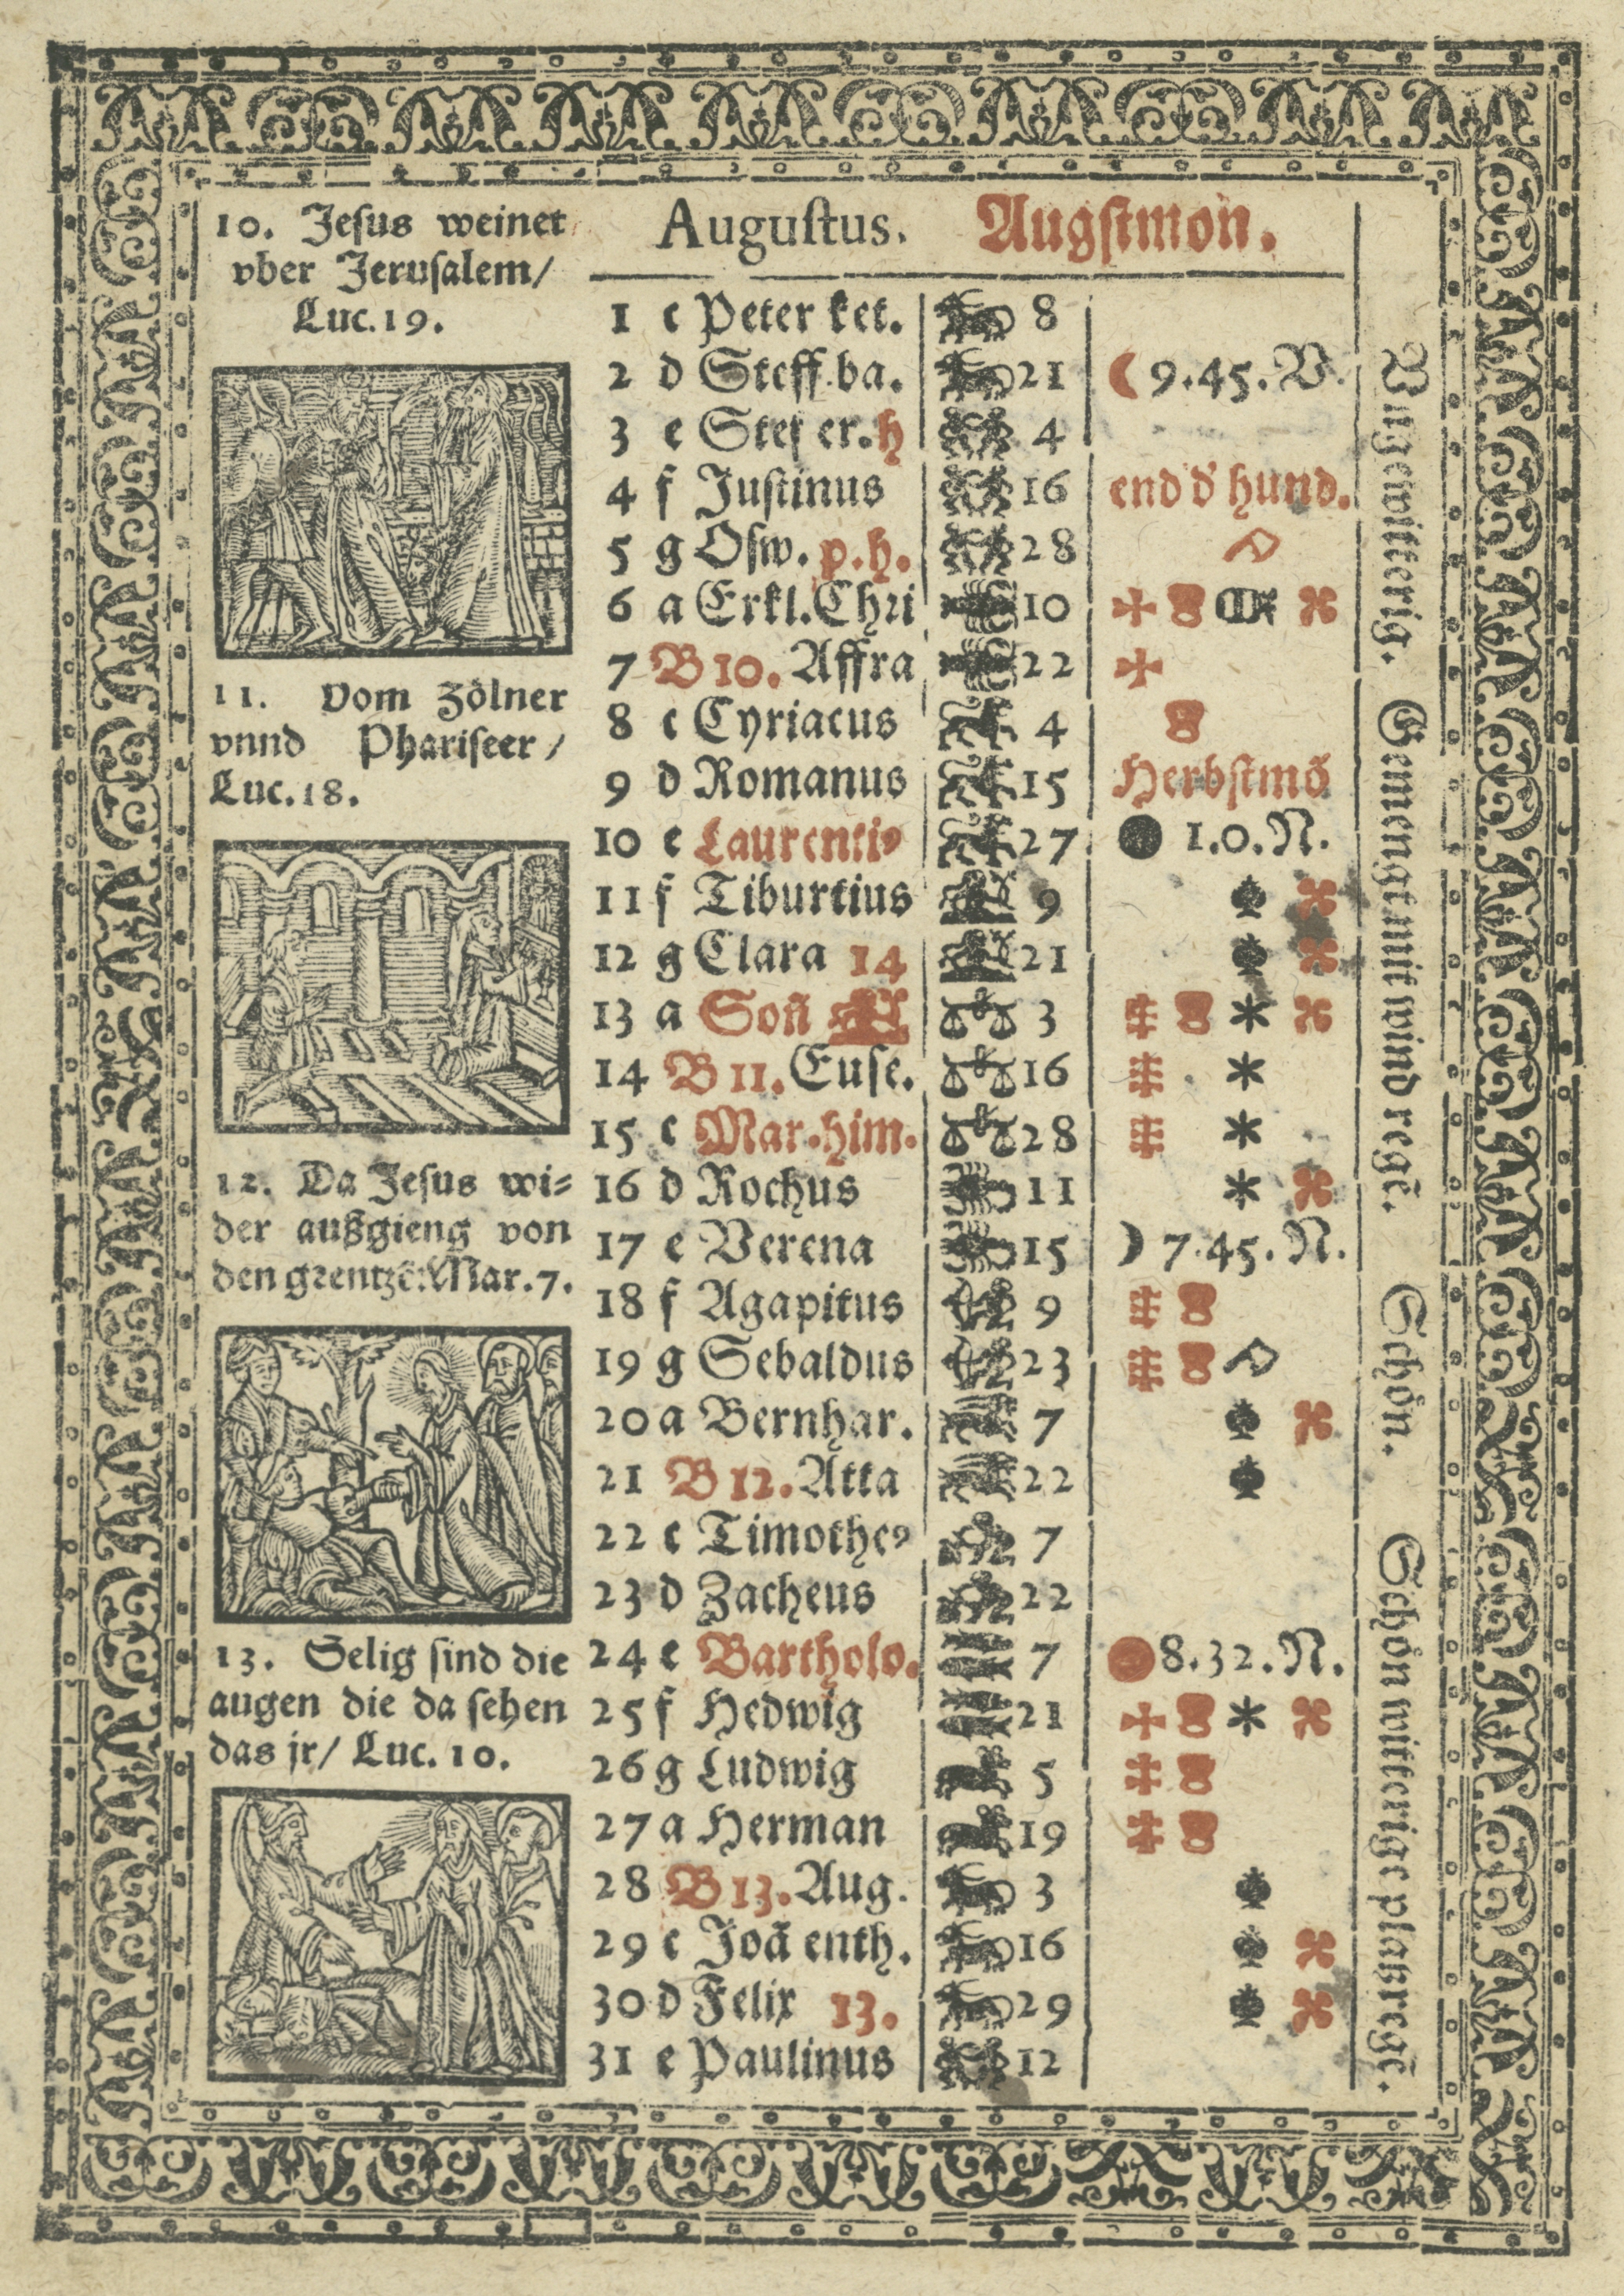 10. Jesus weinet
vber Jerusalem/
Luc. 19.
11. Vom Zölner
vnnd Phariseer /
Luc. 18.
12. Da Jesus wi-
der außgieng von
den grentzē: Mar. 7.
13. Selig sind die
augen die da sehen
das jr/ Luc. 10.
Augustus. Augstmon.
1 c Peter ket. 8
2 d Steff. ba. 21 ☾ 9.45. V.
3 e Stef er. h 4
4 f Justinus 16 end d' hund.
5 g Osw. p. h. 28
6 a Erkl. Chri 10
7 B 10. Affra 22
8 c Cyriacus 4
9 d Romanus 15 Herbstmō
10 e Laurenti⁹ 27 ● 1.0. N.
11 f Tiburtius 9
12 g Clara 14 21
13 a Soñ 3
14 B 11. Euse. 16
15 c Mar. him. 28
16 d Rochus 11
17 e Verena 15 ☽ 7.45. N.
18 f Agapitus 9
19 g Sebaldus 23
20 a Bernhar. 7
21 B 12. Atta 22
22 c Timothe⁹ 7
23 d Zacheus 22
24 e Bartholo. 7 ● 8.32. N.
25 f Hedwig 21
26 g Ludwig 5
27 a Herman 19
28 B 13. Aug. 3
29 c Joā enth. 16
30 d Felix 13. 29
31 e Paulinus 12
Vngewitterig. Gemengt mit wind regē. Schön. Schön witterige platzregē.